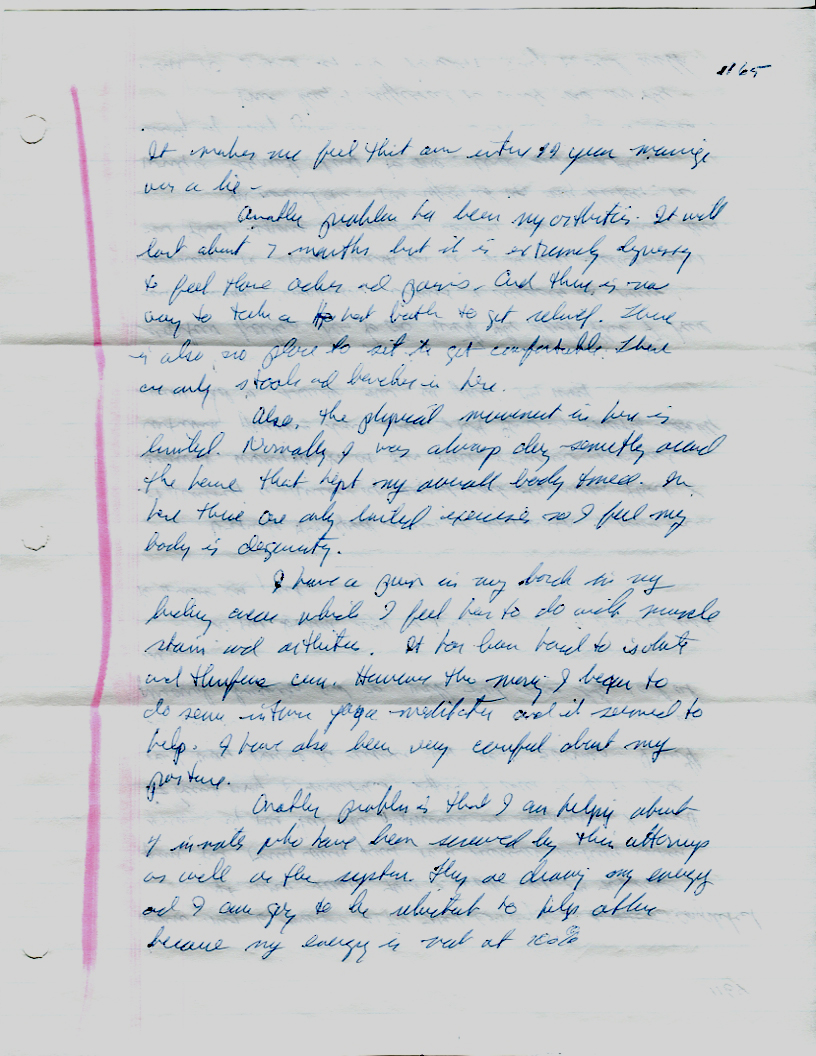 #65
It makes me feel that our entire 29 year marriage
was a lie -
Another problem has been my arthritis. It will
last about 7 months but it is extremely
to feel these aches and pains. And there is no
way to take a hot bath to get relief. There
is also no place to sit to get comfortable. There
are only stools and benches in here.
Also, the physical movement in here is
limited. Normally I was always doing something around
the house that kept my overall body toned. In
here there are only limited exercises so I feel my
body is
I have a pain in my back in my
area which I feel has to do with muscle
strain and arthritis. It has been hard to isolate
and therefore cure. However this morning I began to
do some yoga meditation and it seemed to
help. I have also been very careful about my
posture.
Another problem is that I am helping about
4 inmates who have been screwed by their attorneys
as well as the system. They are draining my energy
and I am going to be reluctant to help others
because my energy is not at 100%